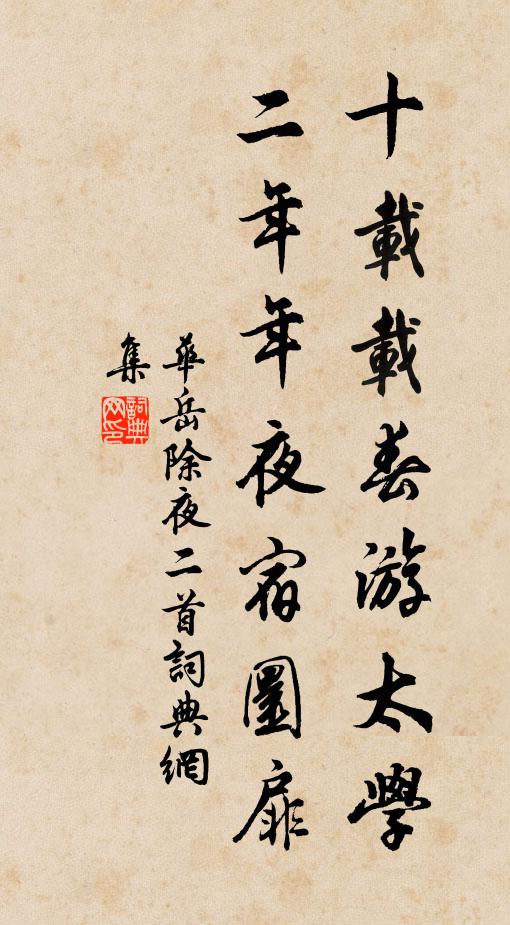 十載載春游太學
二年年夜宿圜扉
華岳除夜二首詞典網
集
詞典
网印